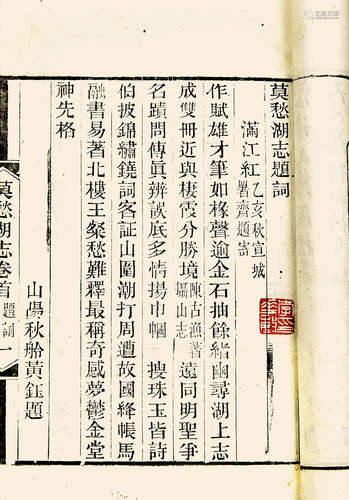 莫愁湖志題詞
滿江紅 乙亥秋宣城
署齊題寄
作賦雄才筆如椽聲逾金石抽餘緒幽尋湖上志
成雙冊近與棲霞分勝境 陳古漁著
攝山志 遠同明聖爭
名蹟問傳眞辨誤底多情揚巾幗 搜珠玉皆詩
伯披錦繡鐃詞客証山圍潮打周遭故國絳帳馬
融書易著北樓王粲愁難釋最稱奇感夢鬱金堂
神先格
山陽秋舲黃鈺題
莫愁湖志卷首 題詞 一